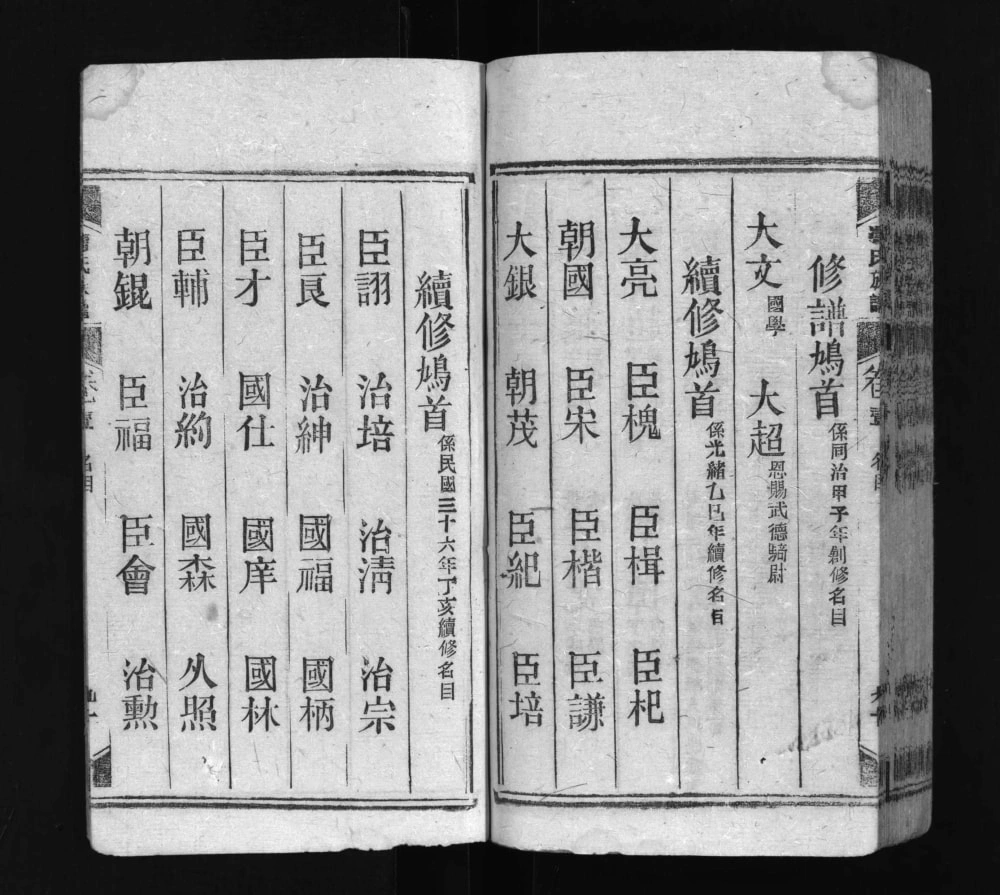 修譜鳩首 係同治甲子年創修名目
大文 國學 大超 恩賜武德騎尉
續修鳩首 係光緒乙巳年續修名目
大亮 臣槐 臣楫 臣杞
朝國 臣宋 臣楷 臣謙
大銀 朝茂 臣紀 臣培
續修鳩首 係民國三十六年丁亥續修名目
臣詡 治培 治清 治宗
臣良 治紳 國福 國柄
臣才 國仕 國庠 國林
臣輔 治絢 國森 久照
朝錕 臣福 臣會 治勳